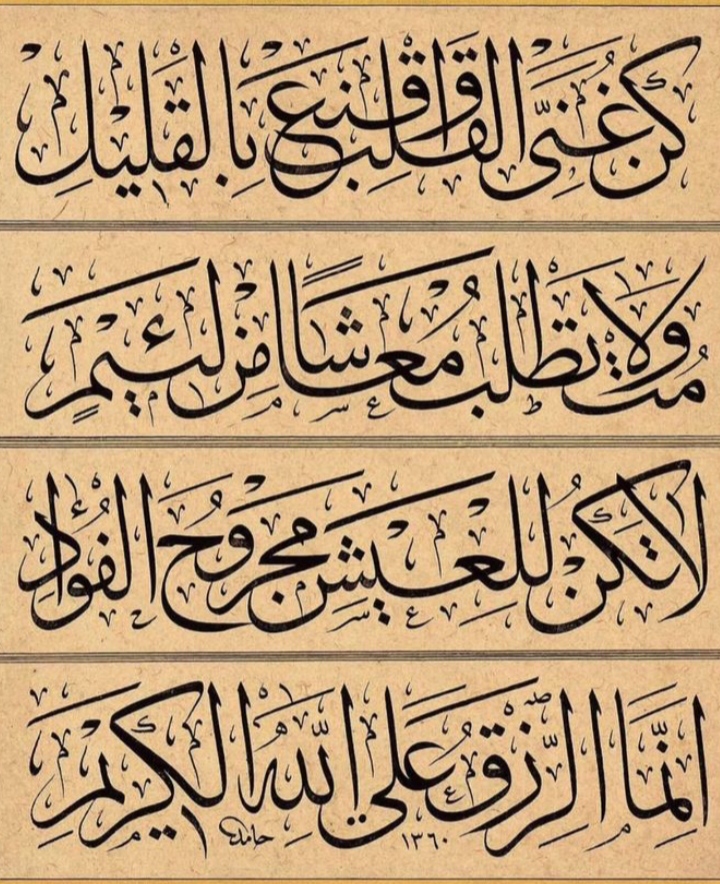 كن غنى القلب واقنع بالقليل
مت ولا تطلب معاشا من لئيم
لا تكن للعيش مجروح الفؤاد
انما الرزق على الله الكريم
١٣٦٠ حامد